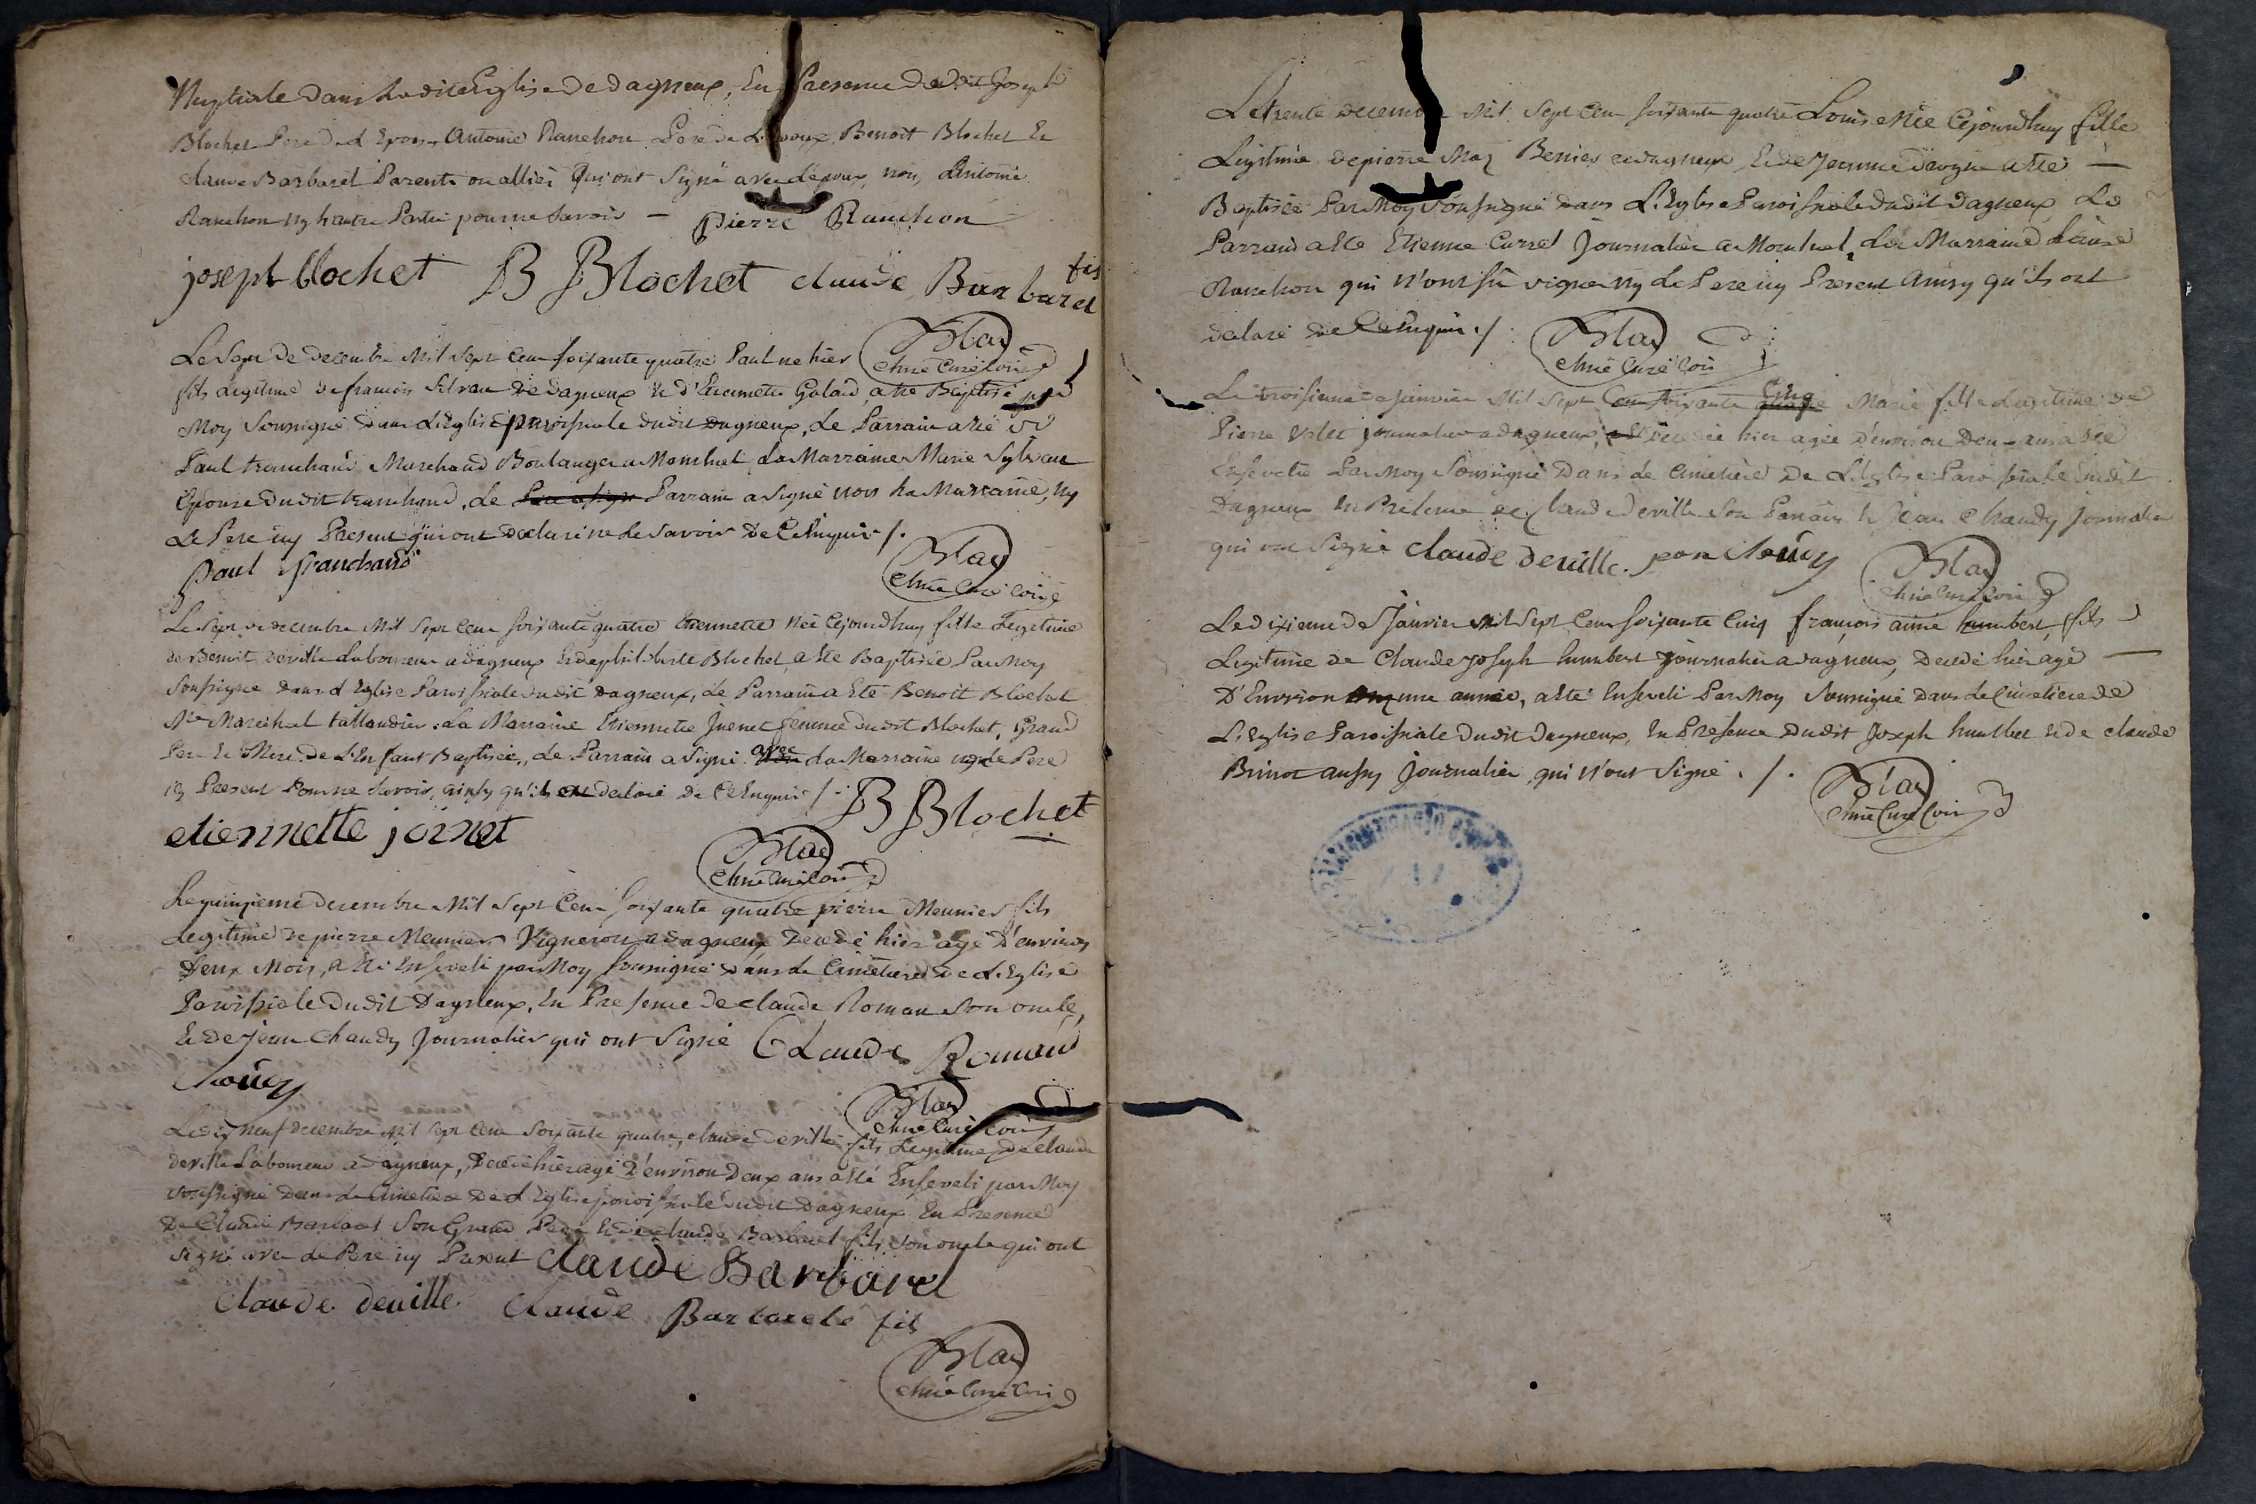 Nuptiale dans Ladite Eglise de dagneux, En Presence dudit Joseph
Blochet Pere de L'Epouse Antoine Ranchon Pere de L'Epoux, Benoit Blochet Et
claude Barbaret Parents ou alliés Qui ont Signé avec L'epoux, non, Antoine
Ranchon ny L'autre Partie pour ne Savoir — pierre Ranchon
joseph blochet B Blochet claude Barbaret fis
Blad
chne Curé
Le Sept de decembre Mil Sept Cent soixante quatre Paul né hier
fils Legitime de francois Silvan de dagneux Et d'Etiennette Golard a été Baptisé par
Moy Soussigné dans L'Eglise paroissiale dudit dagneux, Le Parrain a été
Paul tranchand Marchand Boulanger a Montluel La Marraine Marie Sylvan
Epouse dudit tranchand, Le Parrain a Signé non La Marraine, ny
Le Pere icy Present qui ont declaré ne le Savoir de Ce Enquis /.
Paul tranchand
Blad
chne Curé
Le Sept de decembre Mil Sept Cent soixante quatre Etiennette née Cejourdhuy fille Legitime
de Benoit deville Laboureur a dagneux Et de philiberte Blochet, a été Baptisée Par Moy
Soussigné dans L'Eglise Paroissiale dudit dagneux, Le Parrain a Eté Benoit Blochet
Me Marechal tallandier, La Marraine Etiennette Joinet femme dudit Blochet, Grand
Pere Et Mere de L'Enfant Baptisée, Le Parrain a Signé avec La Marraine non le Pere
icy Present Pour ne Savoir, ainsy qu'il a declaré de Ce Enquis /.
B Blochet
etiennette joinet
Blad
chne Curé
Le quinzieme decembre Mil Sept Cent soixante quatre pierre Meunier fils
Legitime de pierre Meunier Vigneron a dagneux Decedé hier agé D'environ
Deux Mois, a Eté Enseveli par Moy soussigné dans Le Cimetiere de L'Eglise
Paroissiale Dudit Dagneux, En Presence de claude Roman Son oncle,
Et de jean Chaudy Journalier qui ont Signé Claude Romand
Chaudy
Blad
chne Curé
Le dix neuf decembre Mil Sept Cent Soixante quatre, claude deville fils Legitime de claude
deville Laboureur a dagneux, Decedé hier agé D'environ Deux ans a été Enseveli par Moy
soussigné dans Le Cimetiere de L'Eglise paroissiale dudit dagneux En Presence
de Claude Barbaret Son Grand Pere Et de claude Barbaret fils, Son oncle qui ont
Signé avec Le Pere icy Present claude Barbaret
claude deville claude Barbaret fils
Blad
chne Curé
Le trente decembre Mil Sept Cent soixante quatre Louise née Cejourdhuy fille
Legitime de pierre May a dagneux, Et de a été —
Baptisée Par Moy Soussigné dans L'Eglise Paroissiale dudit dagneux, Le
Parrain a Eté Etienne Curret Journalier a Montluel, La Marraine
Ranchon qui n'ont sû signer ny Le Pere icy Present Ainsy qu'ils ont
declaré de Ce Enquis ./.
Blad
chne Curé
Le troisieme janvier Mil Sept Cent soixante Cinq Marie fille Legitime de
Pierre journalier a dagneux, Decedée hier agée D'environ Deux ans a Eté
Ensevelie Par Moy Soussigné Dans Le Cimetiere De L'Eglise Paroissiale dudit
Dagneux En Presence de Claude deville Son Parrain Et Jean Chaudy Journalier
qui ont Signé claude deville. jean Chaudy
Blad
chne Curé
Le dixieme de Janvier Mil Sept Cent soixante Cinq francois aimé humbert, fils
Legitime de Claude joseph humbert journalier a dagneux, Decedé hier agé —
D'Environ une année, a Eté Enseveli Par Moy Soussigné Dans Le Cimetiere de
L'Eglise Paroissiale Dudit Dagneux, En Presence Dudit Joseph humbert Et de claude
aussy journalier, qui n'ont Signé ./.
Blad
chne Curé